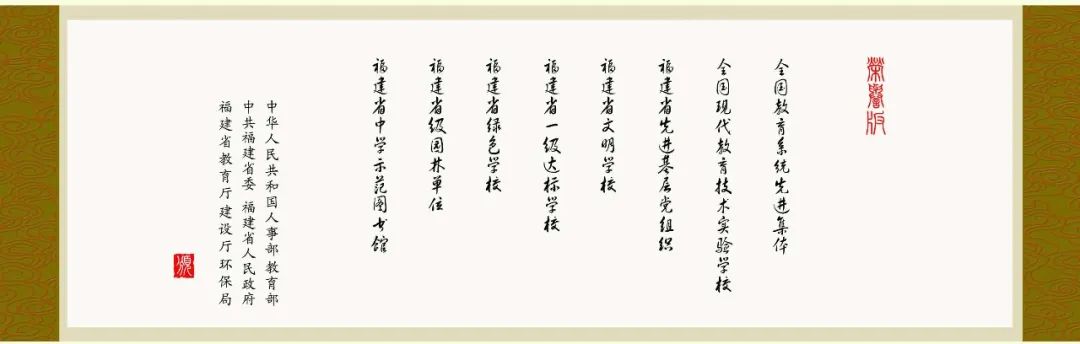 荣誉版
全国教育系统先进集体
全国现代教育技术实验学校
福建省先进基层党组织
福建省文明学校
福建省一级达标学校
福建省绿色学校
福建省级园林单位
福建省中学示范图书馆
中华人民共和国人事部教育部
中共福建省委 福建省人民政府
福建省教育厅建设厅环保局
颁